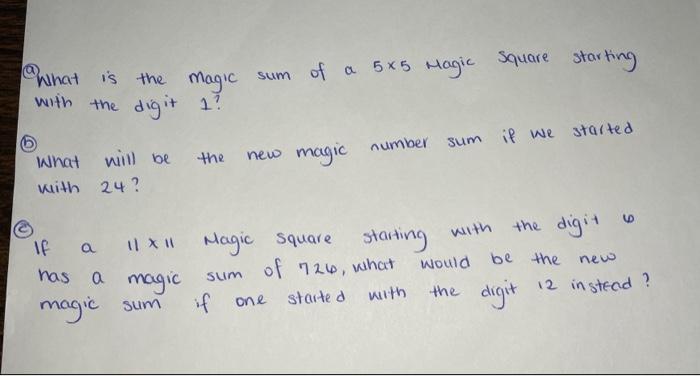 ⓐ What is the magic sum of a 5x5 Magic Square starting
with the digit 1?
ⓑ
What will be the new magic number sum if we started
with 24?
ⓒ
If a 11 x 11 Magic Square starting with the digit 6
has a magic sum of 726, what would be the new
magic sum if one started with the digit 12 instead?